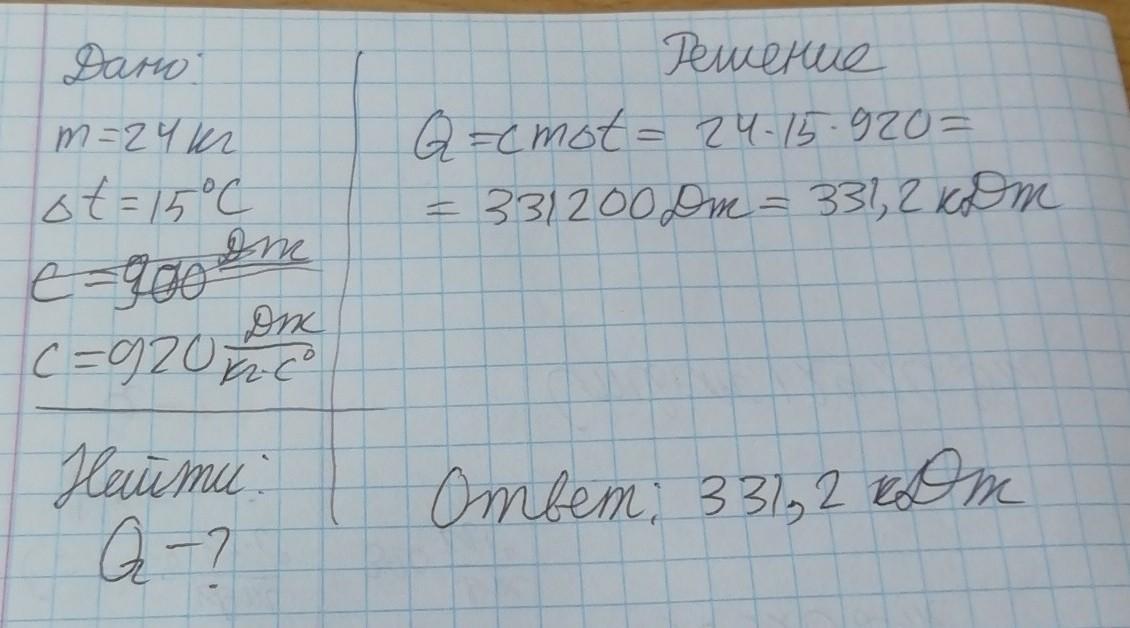 Дано:
m = 24 кг
Δt = 15°C
c = 900 Дж
c = 920 Дж/кг·C°
Найти:
Q - ?
Решение
Q = cmΔt = 24·15·920 =
= 331200 Дж = 331,2 кДж
Ответ: 331,2 кДж